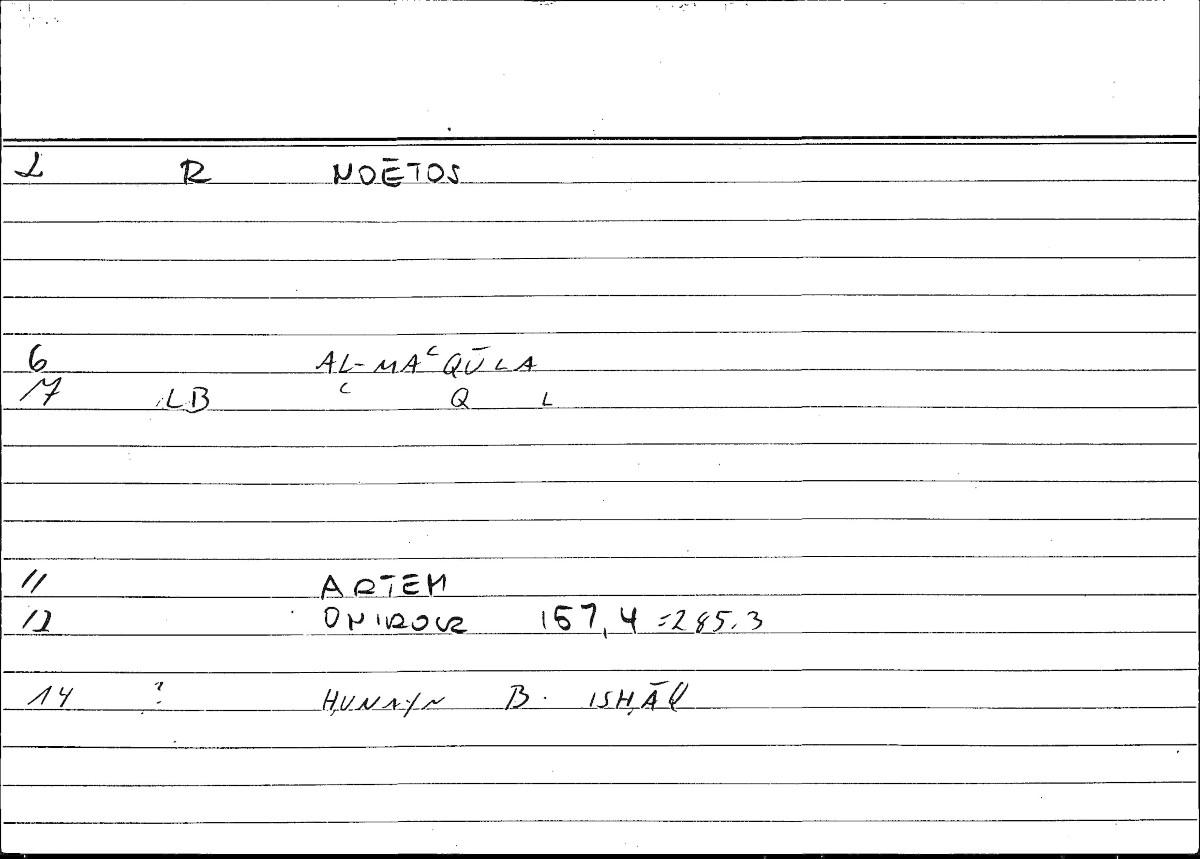 2 R NOĒTOS
6 AL-MAᶜQŪLA
7 LB ᶜ Q L
11 ARTEM
12 ONIROCR 157,4 =285.3
14 ? ḤUNAYN B. ISḤĀQ